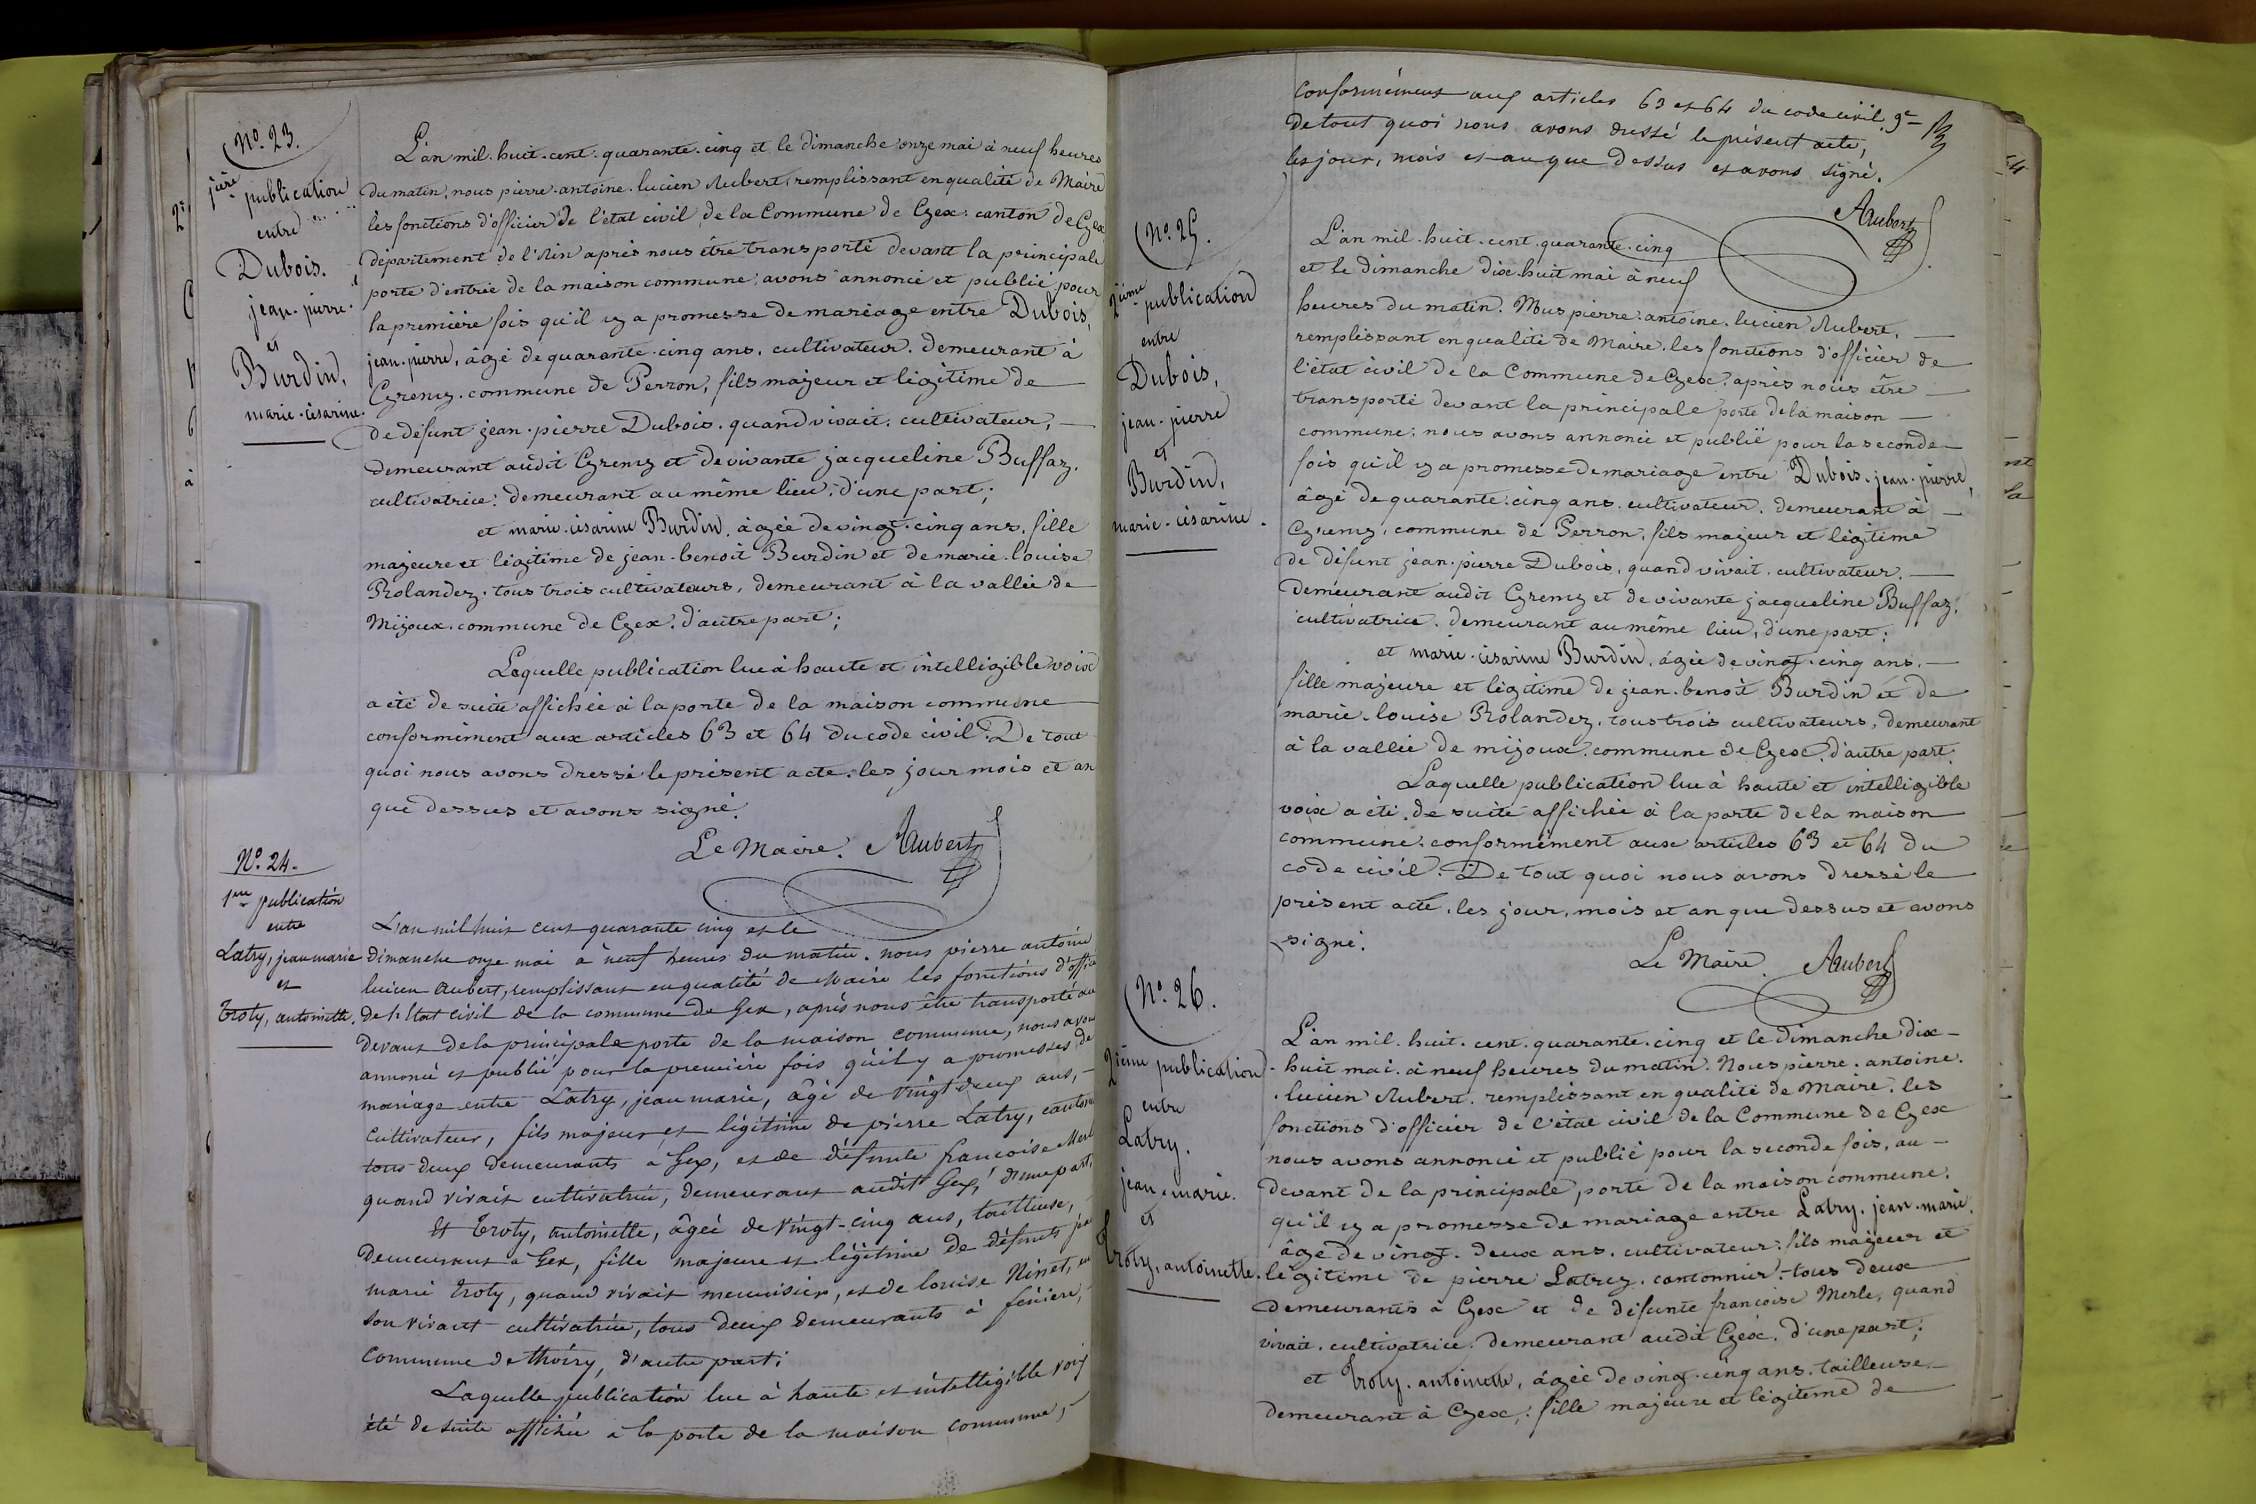 N.° 23.
1ère publication
entre
Dubois.
jean-pierre.
et
Burdin,
marie-césarine.
L'an mil. huit. cent. quarante. cinq et le dimanche onze mai à neuf heures
du matin, nous pierre. antoine. lucien Aubert, remplissant en qualité de Maire
les fonctions d'officier de l'état civil, de la Commune de Gex, canton de Gex
département de l'Ain après nous être transporté devant la principale
porte d'entrée de la maison commune, avons annoncé et publié pour
la première fois qu'il y a promesse de mariage entre Dubois,
jean-pierre, âgé de quarante-cinq ans, cultivateur. demeurant à
Greny, commune de Perron, fils majeur et légitime de
de défunt jean-pierre Dubois. quand vivait, cultivateur,
demeurant audit Greny et de vivante jacqueline Buffaz.
cultivatrice. demeurant au même lieu, d'une part;
et marie-césarine Burdin, âgée de vingt-cinq ans, fille
majeure et légitime de jean-benoit Burdin et de marie-louise
Rolandez, tous trois cultivateurs, demeurant à la vallée de
Mijoux, commune de Gex, d'autre part;
Laquelle publication lue à haute et intelligible voix
a été de suite affichée à la porte de la maison commune
conformément aux articles 63 et 64 du code civil. De tout
quoi nous avons dressé le présent acte, les jour mois et an
que dessus et avons signé.
Le Maire. Aubert
N.° 24.
1ere publication
entre
Latry, jean marie
et
Troty, antoinette.
L'an mil huit cent quarante cinq et le
dimanche onze mai à neuf heures du matin. nous pierre antoine
lucien Aubert, remplissant en qualité de Maire les fonctions d'officier
de l'Etat civil de la commune de Gex, après nous être transporté au
devant de la principale porte de la maison commune, nous avons
annoncé et publié pour la première fois qu'il y a promesses de
mariage entre Latry, jean marie, âgé de vingt deux ans,
cultivateur, fils majeur et légitime de pierre Latry, cantonn
tous deux demeurants à Gex, et de défunte francoise Merl
quand vivait cultivatrice, demeurant audit Gex, d'une part.
Et Troty, antoinette, âgée de vingt-cinq ans, tailleuse,
demeurant à Gex, fille majeure et légitime de défunts
marie Troty, quand vivait menuisier, et de louise Ninet,
son vivant cultivatrice, tous deux demeurants à fenière,
commune de thoiry, d'autre part;
Laquelle publication lue à haute et intelligible voix
été de suite affichée à la porte de la maison commune,
conformément aux articles 63 et 64 du code civil.
de tout quoi nous avons dressé le présent acte,
les jour, mois et an que dessus et avons signé.
Aubert
N.° 25.
2ième publication
entre
Dubois,
jean-pierre
et
Burdin,
marie-césarine.
L'an mil. huit. cent. quarante. cinq
et le dimanche dix-huit mai à neuf
heures du matin. Nous pierre. antoine. lucien Aubert,
remplissant en qualité de Maire, les fonctions d'officier de
l'état civil de la Commune de Gex, après nous être
transporté devant la principale porte de la maison
commune, nous avons annoncé et publié pour la seconde
fois qu'il y a promesse de mariage entre Dubois. jean-pierre,
âgé de quarante-cinq ans, cultivateur, demeurant à
Greny, commune de Perron, fils majeur et légitime
de défunt jean-pierre Dubois, quand vivait, cultivateur.
demeurant audit Greny et de vivante jacqueline Buffaz,
cultivatrice. demeurant au même lieu, d'une part;
et marie-césarine Burdin, âgée de vingt-cinq ans.
fille majeure et légitime de jean-benoit Burdin et de
marie-louise Rolandez, tous trois cultivateurs, demeurant
à la vallée de mijoux, commune de Gex, d'autre part.
Laquelle publication lue à haute et intelligible
voix a été de suite affichée à la porte de la maison
commune, conformément aux articles 63 et 64 du
code civil. De tout quoi nous avons dressé le
présent acte, les jour, mois et an que dessus et avons
signé.
Le Maire. Aubert
N.° 26.
2ième publication
entre
Latry.
jean-marie.
et
Troty, antoinette.
L'an mil. huit. cent. quarante. cinq et le dimanche dix-
-huit mai. à neuf heures du matin. Nous pierre. antoine.
lucien Aubert. remplissant en qualité de Maire, les
fonctions d'officier de l'état civil de la Commune de Gex
nous avons annoncé et publié pour la seconde fois, au-
devant de la principale porte de la maison commune.
qu'il y a promesse de mariage entre Latry. jean-marie.
âgé de vingt-deux ans, cultivateur, fils majeur et
légitime de pierre Latry, cantonnier, tous deux
demeurants à Gex et de défunte francoise Merle, quand
vivait, cultivatrice. demeurant audit Gex, d'une part;
et Troty. antoinette, âgée de vingt-cinq ans, tailleuse,
demeurant à Gex, fille majeure et légitime de